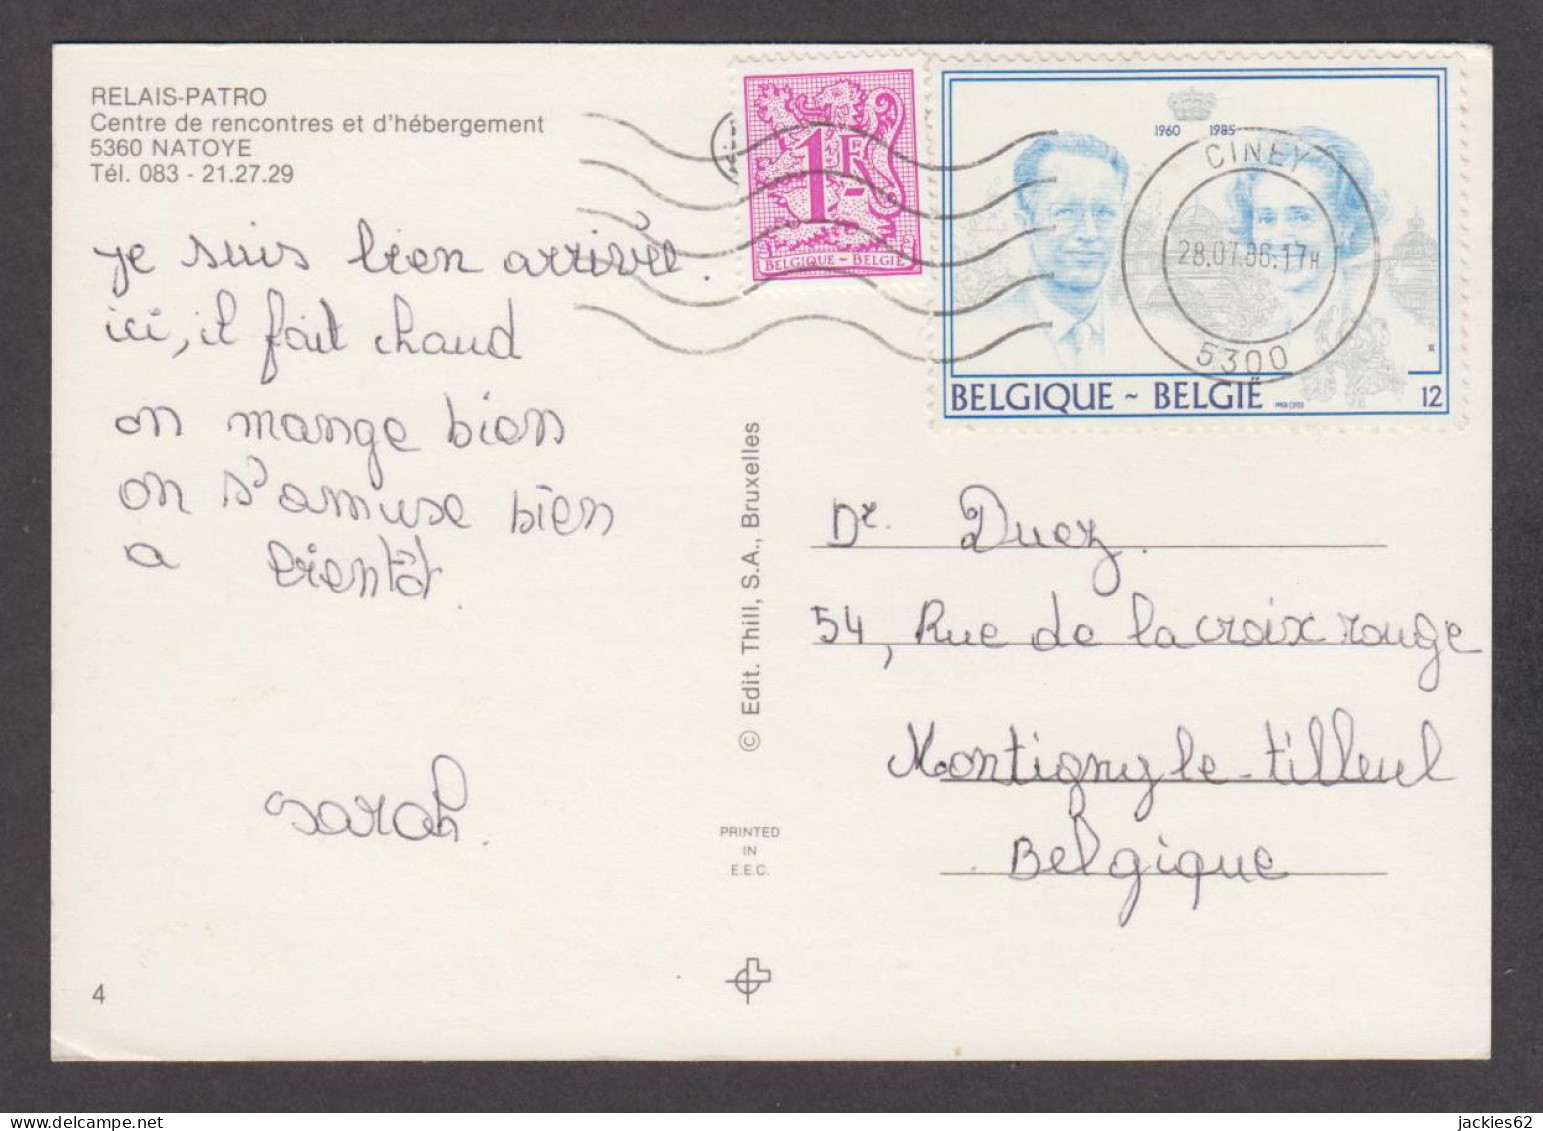 RELAIS-PATRO
Centre de rencontres et d'hébergement
5360 NATOYE
Tél. 083 - 21.27.29
je suis bien arrivée.
ici, il fait chaud
on mange bien
on s'amuse bien
a bientôt.
sarah.
4
© Edit. Thill, S.A., Bruxelles
PRINTED
IN
E.E.C.
1F
BELGIQUE - BELGIË
1960 1985
CINEY
28.07.86.17H
5300
BELGIQUE ~ BELGIË 12
Dr. Duez.
54, Rue de la croix rouge
Montigny le-tilleul
Belgique
jackies62